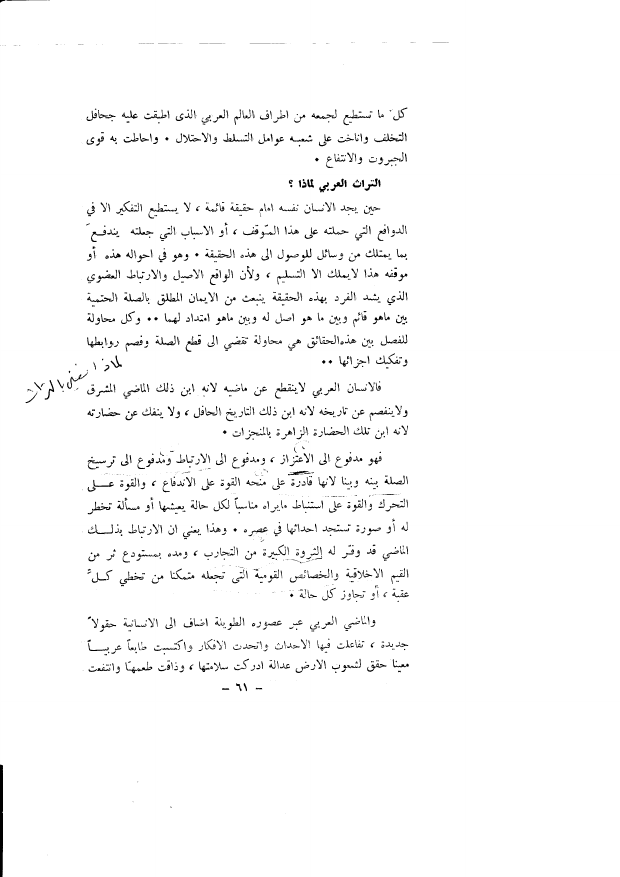 كل ما تستطيع لجمعه من اطراف العالم العربي الذى اطبقت عليه جحافل
التخلف واناخت على شعبه عوامل التسلط والاحتلال ٠ واحاطت به قوى
الجبروت والانتفاع ٠
التراث العربي لماذا ؟
حين يجد الانسان نفسه امام حقيقة قائمة ، لا يستطيع التفكير الا في
الدوافع التي حملته على هذا الموقف ، أو الاسباب التي جعلته يندفع
بما يمتلك من وسائل للوصول الى هذه الحقيقة ٠ وهو في احواله هذه أو
موقفه هذا لايملك الا التسليم ، ولأن الواقع الاصيل والارتباط العضوي
الذي يشد الفرد بهذه الحقيقة ينبعث من الايمان المطلق بالصلة الحتمية
بين ماهو قائم وبين ما هو اصل له وبين ماهو امتداد لهما ٠٠ وكل محاولة
للفصل بين هذه الحقائق هي محاولة تقضي الى قطع الصلة وفصم روابطها
وتفكيك اجزائها ٠٠
لماذا
فالانسان العربي لاينقطع عن ماضيه لانه ابن ذلك الماضي المشرق
ولاينفصم عن تاريخه لانه ابن ذلك التاريخ الحافل ، ولا ينفك عن حضارته
لانه ابن تلك الحضارة الزاهرة بالمنجزات ٠
فهو مدفوع الى الأعتزاز ، ومدفوع الى الارتباط ومدفوع الى ترسيخ
الصلة بينه وبينا لانها قادرة على منحه القوة على الاندفاع ، والقوة عـلـى
التحرك والقوة على استنباط مايراه مناسباً لكل حالة يعيشها أو مسألة تخطر
له أو صورة تستجد احداثها في عصره ٠ وهذا يعني ان الارتباط بذلـك
الماضي قد وفر له الثروة الكبيرة من التجارب ، ومده بمستودع ثر من
القيم الاخلاقية والخصائص القومية التي تجعله متمكنا من تخطي كـل
عقبة ، أو تجاوز كل حالة ٠
والماضي العربي عبر عصوره الطويلة اضاف الى الانسانية حقولاً
جديدة ، تفاعلت فيها الاحداث واتحدت الافكار واكتسبت طابعاً عربيـاً
معينا حقق لشعوب الارض عدالة ادركت سلامتها ، وذاقت طعمها وانتفعت
– ٦١ –